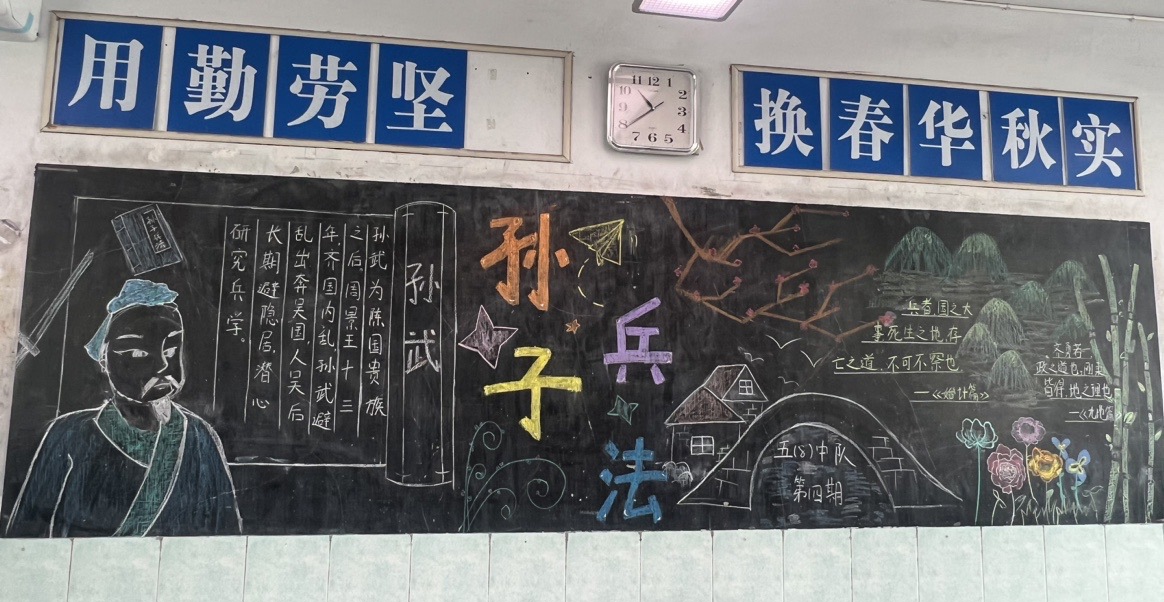 用勤劳坚
换春华秋实
11 12 1
10 2
3
8 4
7 6 5
孙武
孙武为陈国贵族
之后,周景王十三
年,齐国内乱,孙武避
乱出奔吴国,人吴后
长期避隐居,潜心
研究兵学。
孙子兵法
兵者国之大
事死生之地,存
亡之道,不可不察也
—《始计篇》
齐勇若一
政之道也,刚柔
皆得,地之理也
—《九地篇
五(8)中队
第四期